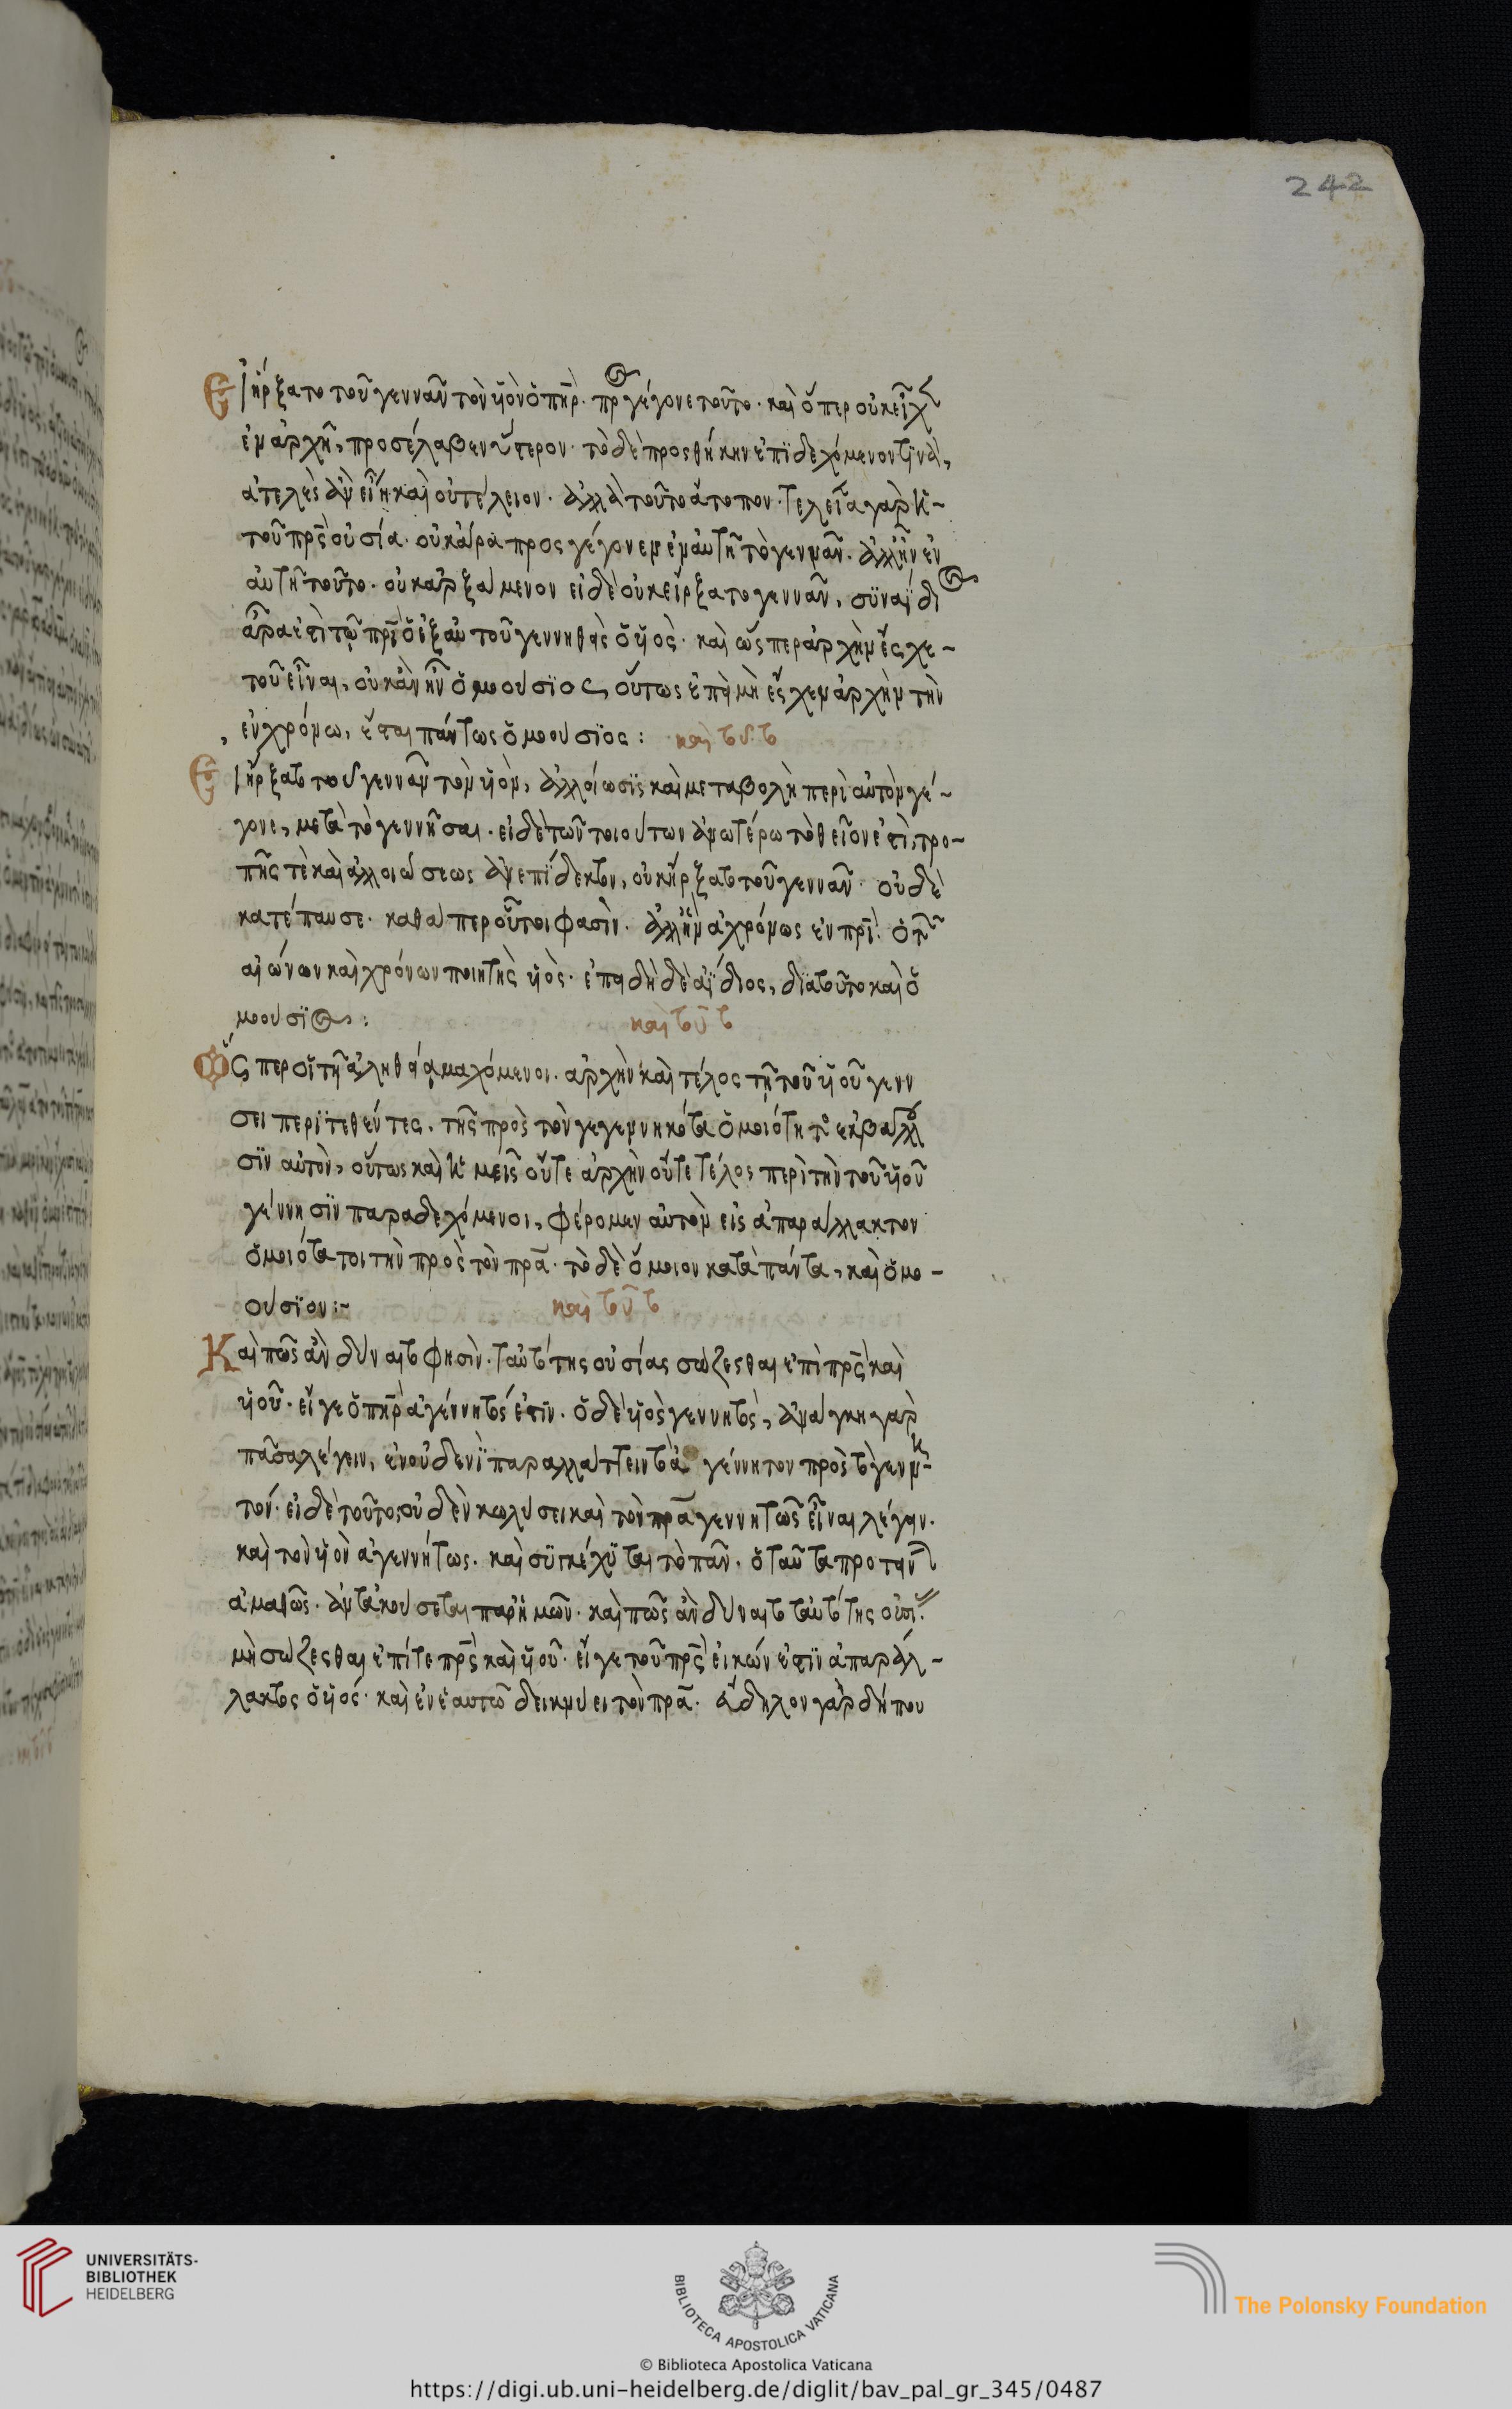 242
Εἰ ἤρξατο τοῦ γεννᾶν τὸν ὑϊὸν ὁ πηρ. πρ γέγονε τοῦτο. καὶ ὅπερ οὐκ εἶχ
ἐν ἀρχῆ, προσέλαβεν ὕστερον. τὸ δὲ προσθήκην ἐπιδεχόμενον τινὰ,
ἀτελὲς ἂν εἴη καὶ οὐ τέλειον. ἀλλὰ τοῦτο ἄτοπον. τελεία γὰρ ἡ
τοῦ πρς οὐσία. οὐκ ἄρα προσγέγονεν ἐν αὐτῆ τὸ γεννᾶν. ἀλλ' ἦν ἐν
αὐτῆ τοῦτο. οὐκ ἀρξάμενον εἰ δὲ οὐκ εἴρξατο γεννᾶν, συναΐδι
ἄρα ἐστὶ τῷ πρι ὁ ἐξ αὐτοῦ γεννηθεὶς ὁ ὑϊός. καὶ ὥσπερ ἀρχὴν ἔσχε
τοῦ εἶναι, οὐκ ἂν ἦν ὁμοούσιος, οὕτως ἐπεὶ μὴ ἔσχεν ἀρχὴν τὴν
ἐν χρόνω, ἔσται πάντως ὁμοούσιος: καὶ τοῦτο
Εἰ ἤρξατο τοῦ γεννᾶν τὸν ὑϊόν, ἀλλοίωσις καὶ μεταβολὴ περὶ αὐτὸν γέ-
γονε, μετὰ τὸ γεννῆσαι. εἰ δὲ τῶν τοιούτων ἀνωτέρω τὸ θεῖον ἐστὶ, τρο-
πῆς τὲ καὶ ἀλλοιώσεως ἀνεπίδεκτον, οὐκ ἤρξατο τοῦ γεννᾶν. οὐδὲ
κατέπαυσε. καθάπερ οὗτοι φασὶν. ἀλλ' ἦν ἀχρόνως ἐν πρι. ὁ τῶν
αἰώνων καὶ χρόνων ποιητὴς ὑϊός. ἐπειδὴ δὲ ἀΐδιος, διὰ τοῦτο καὶ ὁ
μοούσιος: καὶ τοῦτο
Ὥσπερ οἱ τῆ ἀληθεία μαχόμενοι. ἀρχὴν καὶ τέλος τῆ τοῦ ὑϊοῦ γενν
σει περιτεθέντες, τῆς πρὸς τὸν γεγεννηκότα ὁμοιότητος ἐκβάλλου
σιν αὐτὸν, οὕτως καὶ ἡμεῖς οὔτε ἀρχὴν οὔτε τέλος περὶ τὴν τοῦ ὑϊοῦ
γέννησιν παραδεχόμενοι, φέρομεν αὐτὸν εἰς ἀπαράλλακτον
ὁμοιότατοι τὴν πρὸς τὸν πρα. τὸ δὲ ὅμοιον κατὰ πάντα, καὶ ὁμο-
ούσιον:- καὶ τοῦτο
Καὶ πῶς ἂν δύναιτο φησὶν. ταὐτότης οὐσίας σώζεσθαι ἐπὶ πρς καὶ
ὑϊοῦ. εἴγε ὁ πηρ ἀγέννητός ἐστιν. ὁ δὲ ὑϊὸς γεννητὸς, ἀνάγκη γὰρ
πᾶσα λέγειν, ἐν οὐδενὶ παραλλάττειν τὸ ἀγέννητον πρὸς τὸ γενη
τόν. εἰ δὲ τοῦτο, οὐδὲν κωλύσει καὶ τὸν πρα γεννητῶς εἶναι λέγειν.
καὶ τὸν ὑϊὸν ἀγεννήτως. καὶ συγκέχυται τὸ πᾶν. ὁ ταῦτα προτείν
ἀμαθῶς. ἀντακούσεται παρ' ἡμῶν. καὶ πῶς ἂν δύναιτο ταὐτότης οὐσι
μὴ σώζεσθαι ἐπί τε πρς καὶ ὑϊοῦ. εἴγε τοῦ πρς εἰκών ἐστιν ἀπαράλ-
λακτος ὁ ὑϊός. καὶ ἐν ἑαυτῶ δεικνύει τὸν πρα. ἄδηλον γὰρ δήπου
UNIVERSITÄTS-
BIBLIOTHEK
HEIDELBERG
BIBLIOTECA APOSTOLICA VATICANA
The Polonsky Foundation
© Biblioteca Apostolica Vaticana
https://digi.ub.uni-heidelberg.de/diglit/bav_pal_gr_345/0487